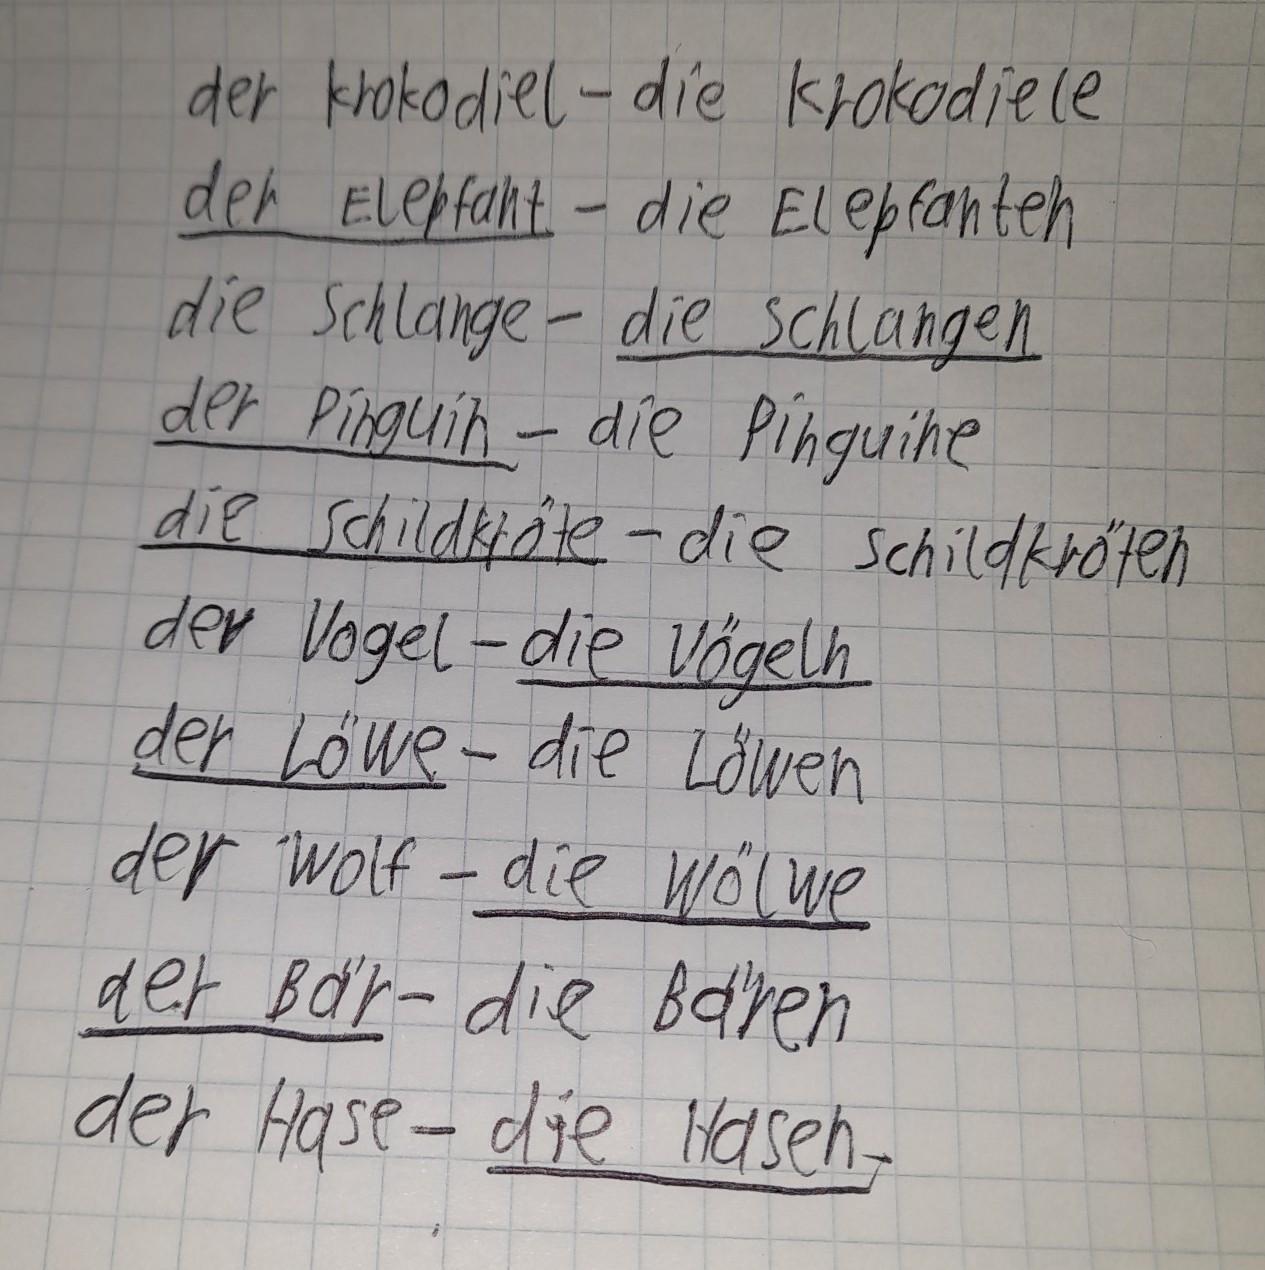 der Krokodiel - die Krokodiele
der Elepfant - die Elepfanten
die Schlange - die Schlangen
der Pinguin - die Pinguine
die Schildkröte - die Schildkröten
der Vogel - die Vögeln
der Löwe - die Löwen
der Wolf - die Wölwe
der Bär - die Bären
der Hase - die Hasen